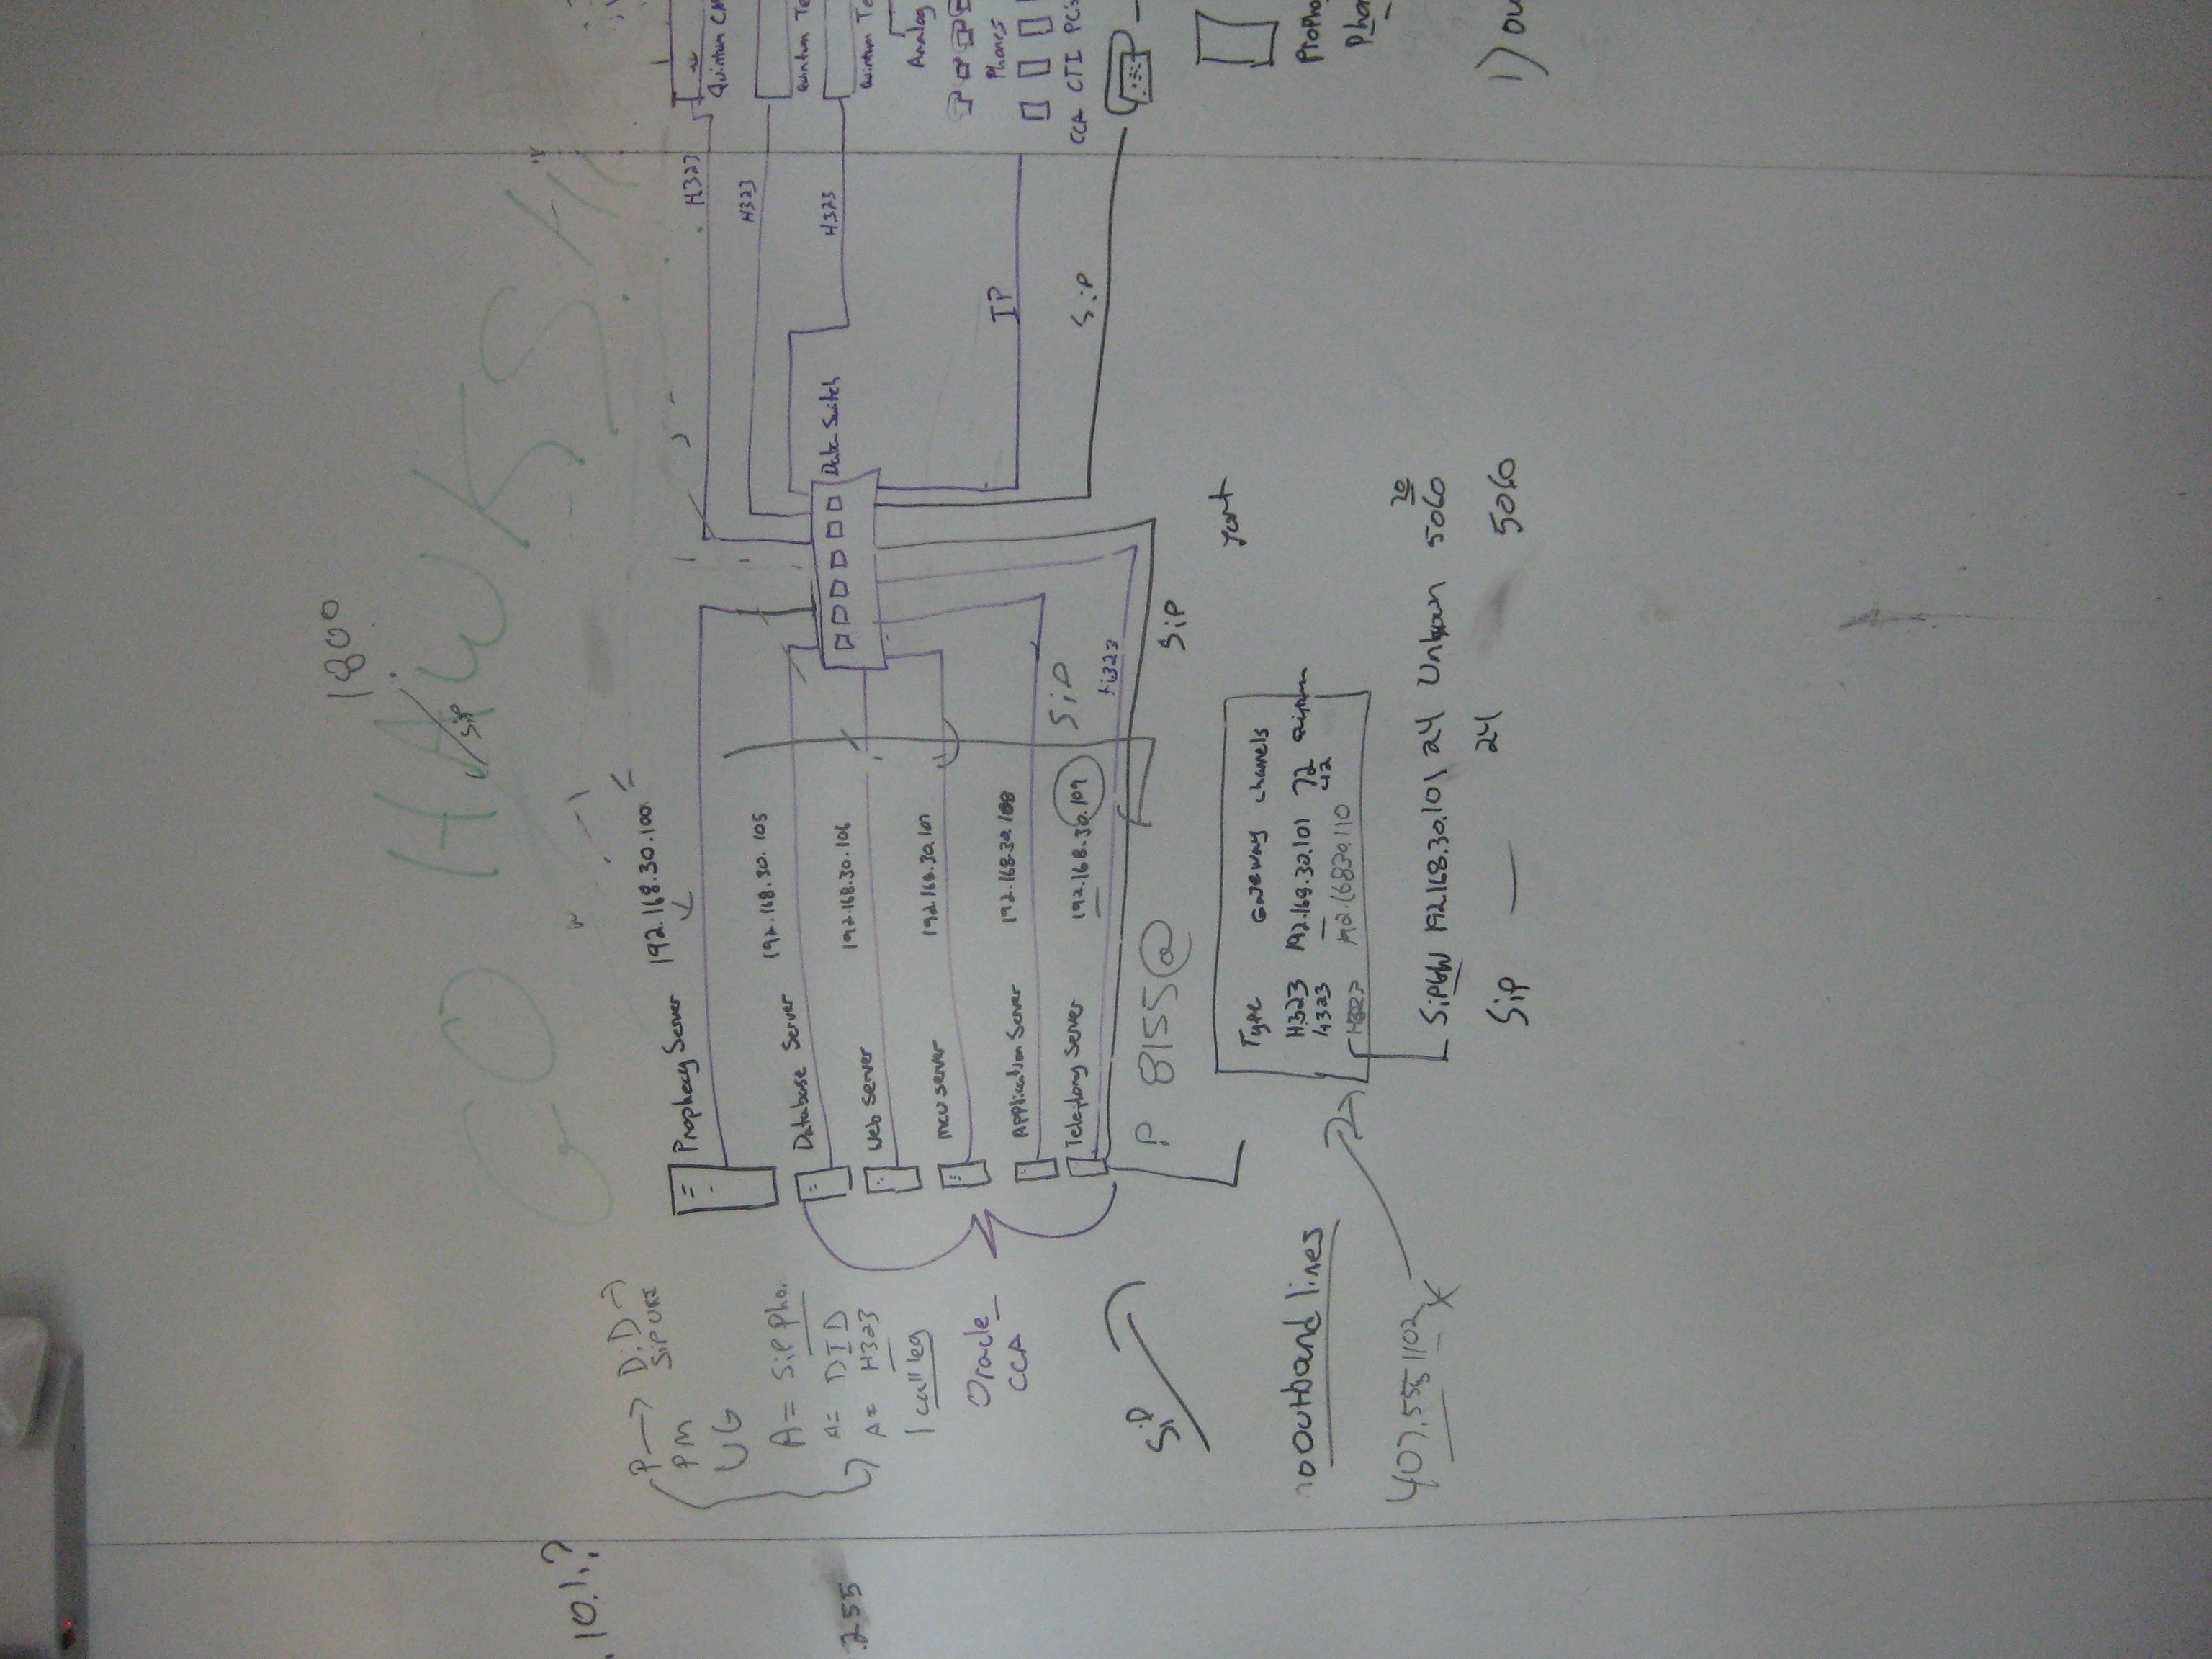 GO HAWKS
1800
SiP
10.1.?
.255
P → DiD →
SiP URI
PM
UG
A = SiP Pho.
A = DID
A = H323
1 call leg
Oracle
CCA
Prophecy Server 192.168.30.100
Database Server 192.168.30.105
Web Server 192.168.30.106
MCU Server
Application Server 192.168.30.108
Telephony Server 192.168.30.109
SiP
H323
SiP
Data Switch
H323
H323
H323
IP
SiP
Quintum
Quintum Te
Quintum Te
Analog
Phones
CCA CTI PCs
Propho
Pho
1) Ou
P 8155@
SiP
port
Type Gateway channels
H323 192.168.30.101 72 Quintum
H323 42
H323 192.168.30.110
SiPGW 192.168.30.101 24 Unkown 5060
20
SiP — 24 5060
no Outband lines
407.555 1102